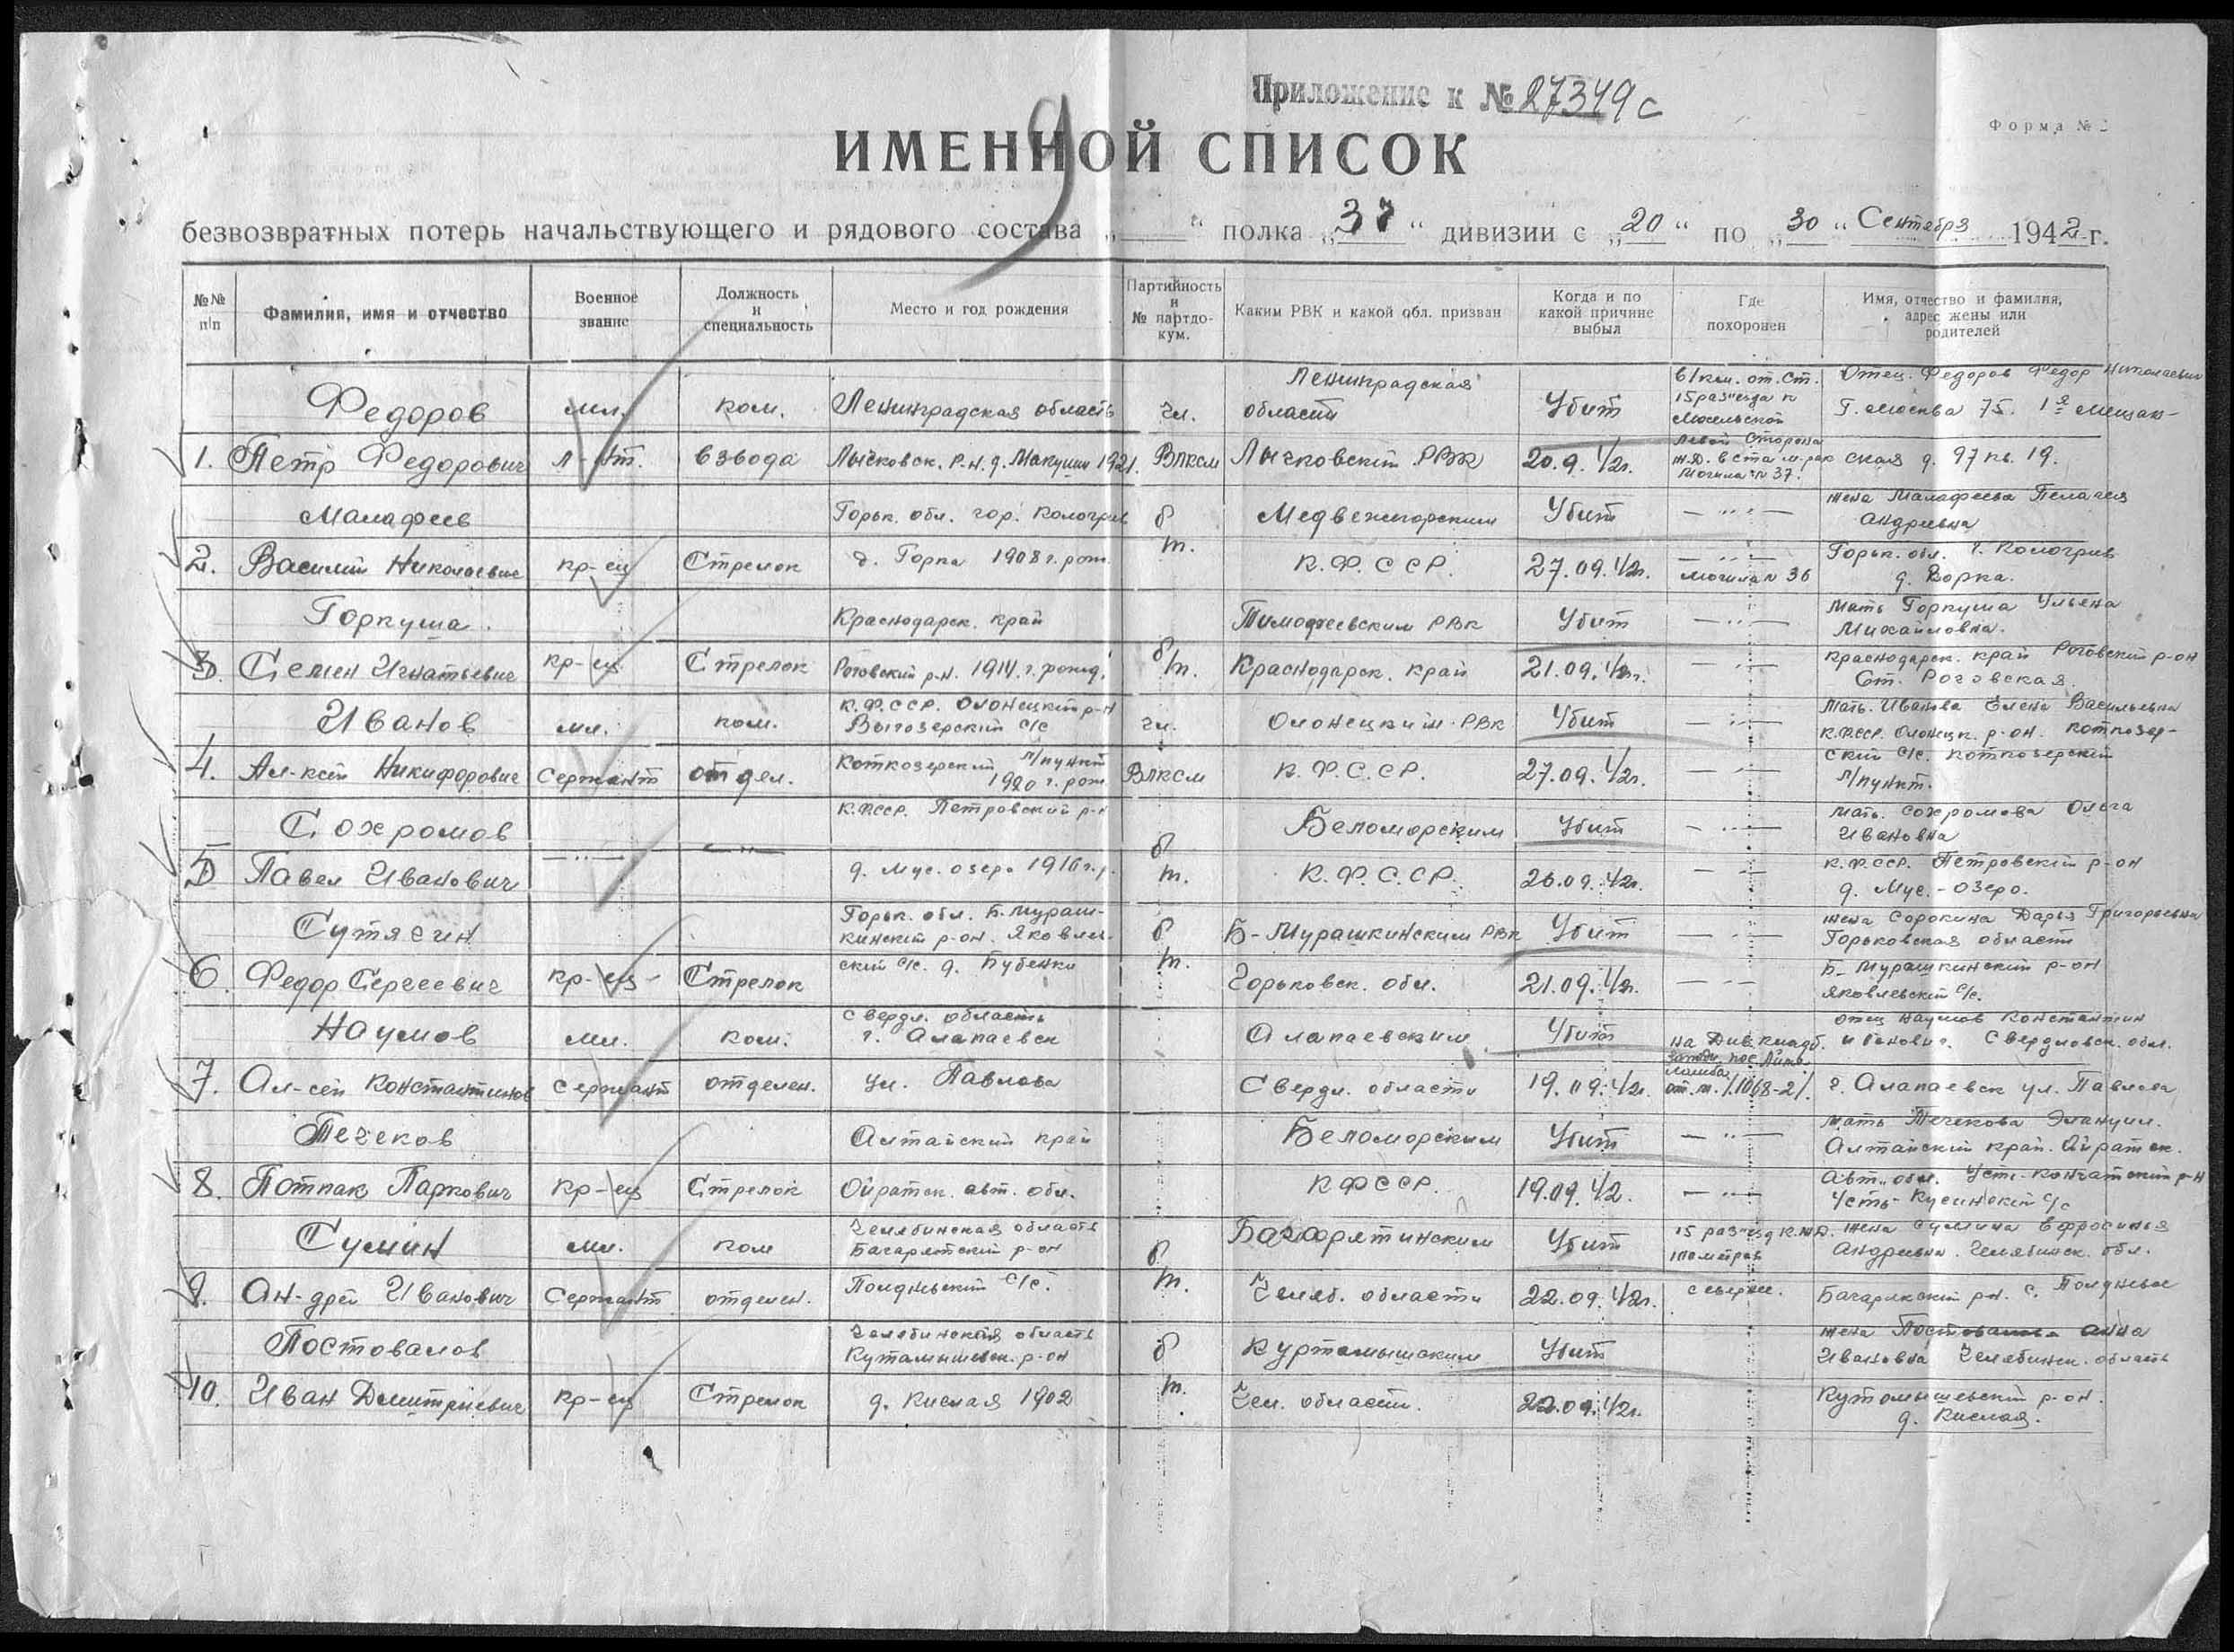 Приложение к № 27349с
9
Форма №
ИМЕННОЙ СПИСОК
безвозвратных потерь начальствующего и рядового состава „ “ полка „37“ дивизии с „20“ по „30“ Сентября 1942 г.
№№ п/п
Фамилия, имя и отчество
Военное звание
Должность и специальность
Место и год рождения
Партийность и № партдокум.
Каким РВК и какой обл. призван
Когда и по какой причине выбыл
Где похоронен
Имя, отчество и фамилия, адрес жены или родителей
1. Федоров
Петр Федорович
мл.
л-нт.
ком.
взвода
Ленинградская область
Лычковск. р-н. д. Макушин 1921.
чл.
Влксм
Ленинградская
области
Лычковский РВК
Убит
20.9.42г.
в 1 км. от. ст.
15 разъезда и
Масельской
Левой сторона
ж.д.
могила № 37.
Отец. Федоров Федор Николаевич
Г. Москва 75. 1я Мещан-
ская д. 97 кв. 19.
2. Малафеев
Василий Николаевич
кр-ец
Стрелок
Горьк. обл. гор. Кологрив
д. Горка 1908 г. рож.
б
п.
Медвежегорским
К.Ф.ССР.
Убит
27.09.42г.
— " —
— " —
могила № 36
жена Малафеева Пелагея
Андреевна
Горьк. обл. г. Кологрив
д. Горка.
3. Горкуша.
Семен Игнатьевич
кр-ец
Стрелок
Краснодарск. край
Роговский р-н. 1914 г. рожд.
б/п.
Тимофеевским РВК
Краснодарск. край
Убит
21.09.42г.
— " —
— " —
Мать Горкуша Ульяна
Михайловна.
Краснодарск. край Роговский р-он
Ст. Роговская.
4. Иванов
Ал-ксей Никифорович
мл.
Сержант
ком.
отдел.
К.Ф.ССР. Олонецкий р-н
Выгозерский с/с
Коткозерский п/пункт
1920 г. рож.
чл.
Влксм
Олонецким РВК
К.Ф.С.СР.
Убит
27.09.42г.
— " —
— " —
Мать. Иванова Елена Васильевна
К.Ф.ССР. Олонецк. р-он. Коткозер-
ский с/с. Коткозерский
п/пункт.
5 Сохромов
Павел Иванович
— " —
— " —
К.Ф.ССР. Петровский р-н
д. Мус. озеро 1916 г.р.
б
п.
Беломорским
К.Ф.С.СР.
Убит
26.09.42г.
— " —
— " —
Мать. Сохромова Ольга
Ивановна
К.Ф.ССР. Петровский р-он
д. Мус.-озеро.
6. Сутягин
Федор Сергеевич
кр-ец
Стрелок
Горьк. обл. Б. Мураш-
кинский р-он. Яковлев-
ский с/с. д. Бубенки
б
п.
Б-Мурашкинским РВК
Горьковск. обл.
Убит
21.09.42г.
— " —
— " —
жена Сорокина Дарья Григорьевна
Горьковская области
Б-Мурашкинский р-он
Яковлевский с/с.
7. Наумов
Ал-сей Константинов
мл.
сержант
ком.
отделен.
Свердл. область
г. Алапаевск
ул. Павлова
Алапаевским
Свердл. области
Убит
19.09.42г.
на Див. кладб.
от. т. /.1068-2/.
отец Наумов Константин
Иванович. Свердловск. обл.
г. Алапаевск ул. Павлова
8. Течеков
Потпак Паркович
кр-ец
Стрелок
Алтайский край
Ойратск. авт. обл.
Беломорским
КФССР.
Убит
19.09.42.
— " —
— " —
мать Течекова
Алтайский край. Ойратск.
Авт. обл. Усть-Конгатский р-н
Усть-Кусинский с/с
9. Сумин
Ан-дрей Иванович
мл.
Сержант
ком
отделен.
Челябинская область
Багарятский р-он
Полдневский с/с.
б
п.
Багарятинским
Челяб. области
Убит
22.09.42г.
15 разъезд К.ж.д.
севернее.
жена Сумина Ефросинья
Андреевна. Челябинск. обл.
Багарякский р-н. с. Полднево
10. Постовалов
Иван Дмитриевич
кр-ец
Стрелок
Челябинская область
Куталышевск. р-он
д. Кислая 1902
б
п.
Куртамышским
Чел. области.
Убит
22.09.42г.
жена Постовалова Анна
Ивановна Челябинск. область
Кутомышевский р-он.
д. Кислая.